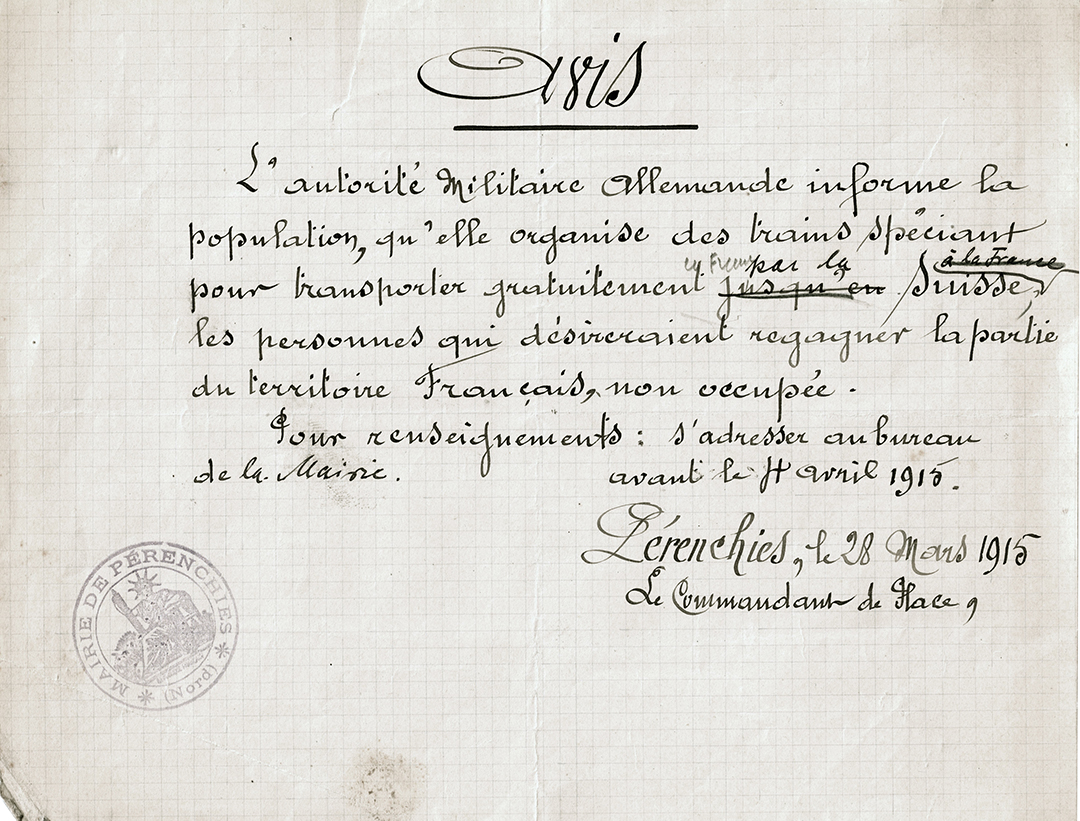 Avis
L'autorité Militaire Allemande informe la
population, qu'elle organise des trains spéciaux
en France par la à la France
pour transporter gratuitement jusqu'en Suisse,
les personnes qui désireraient regagner la partie
du territoire Français, non occupée.
Pour renseignements : s'adresser au bureau
de la Mairie. avant le avril 1915.
Pérenchies, le 28 Mars 1915
Le Commandant de Place,
MAIRIE DE PÉRENCHIES
(Nord)